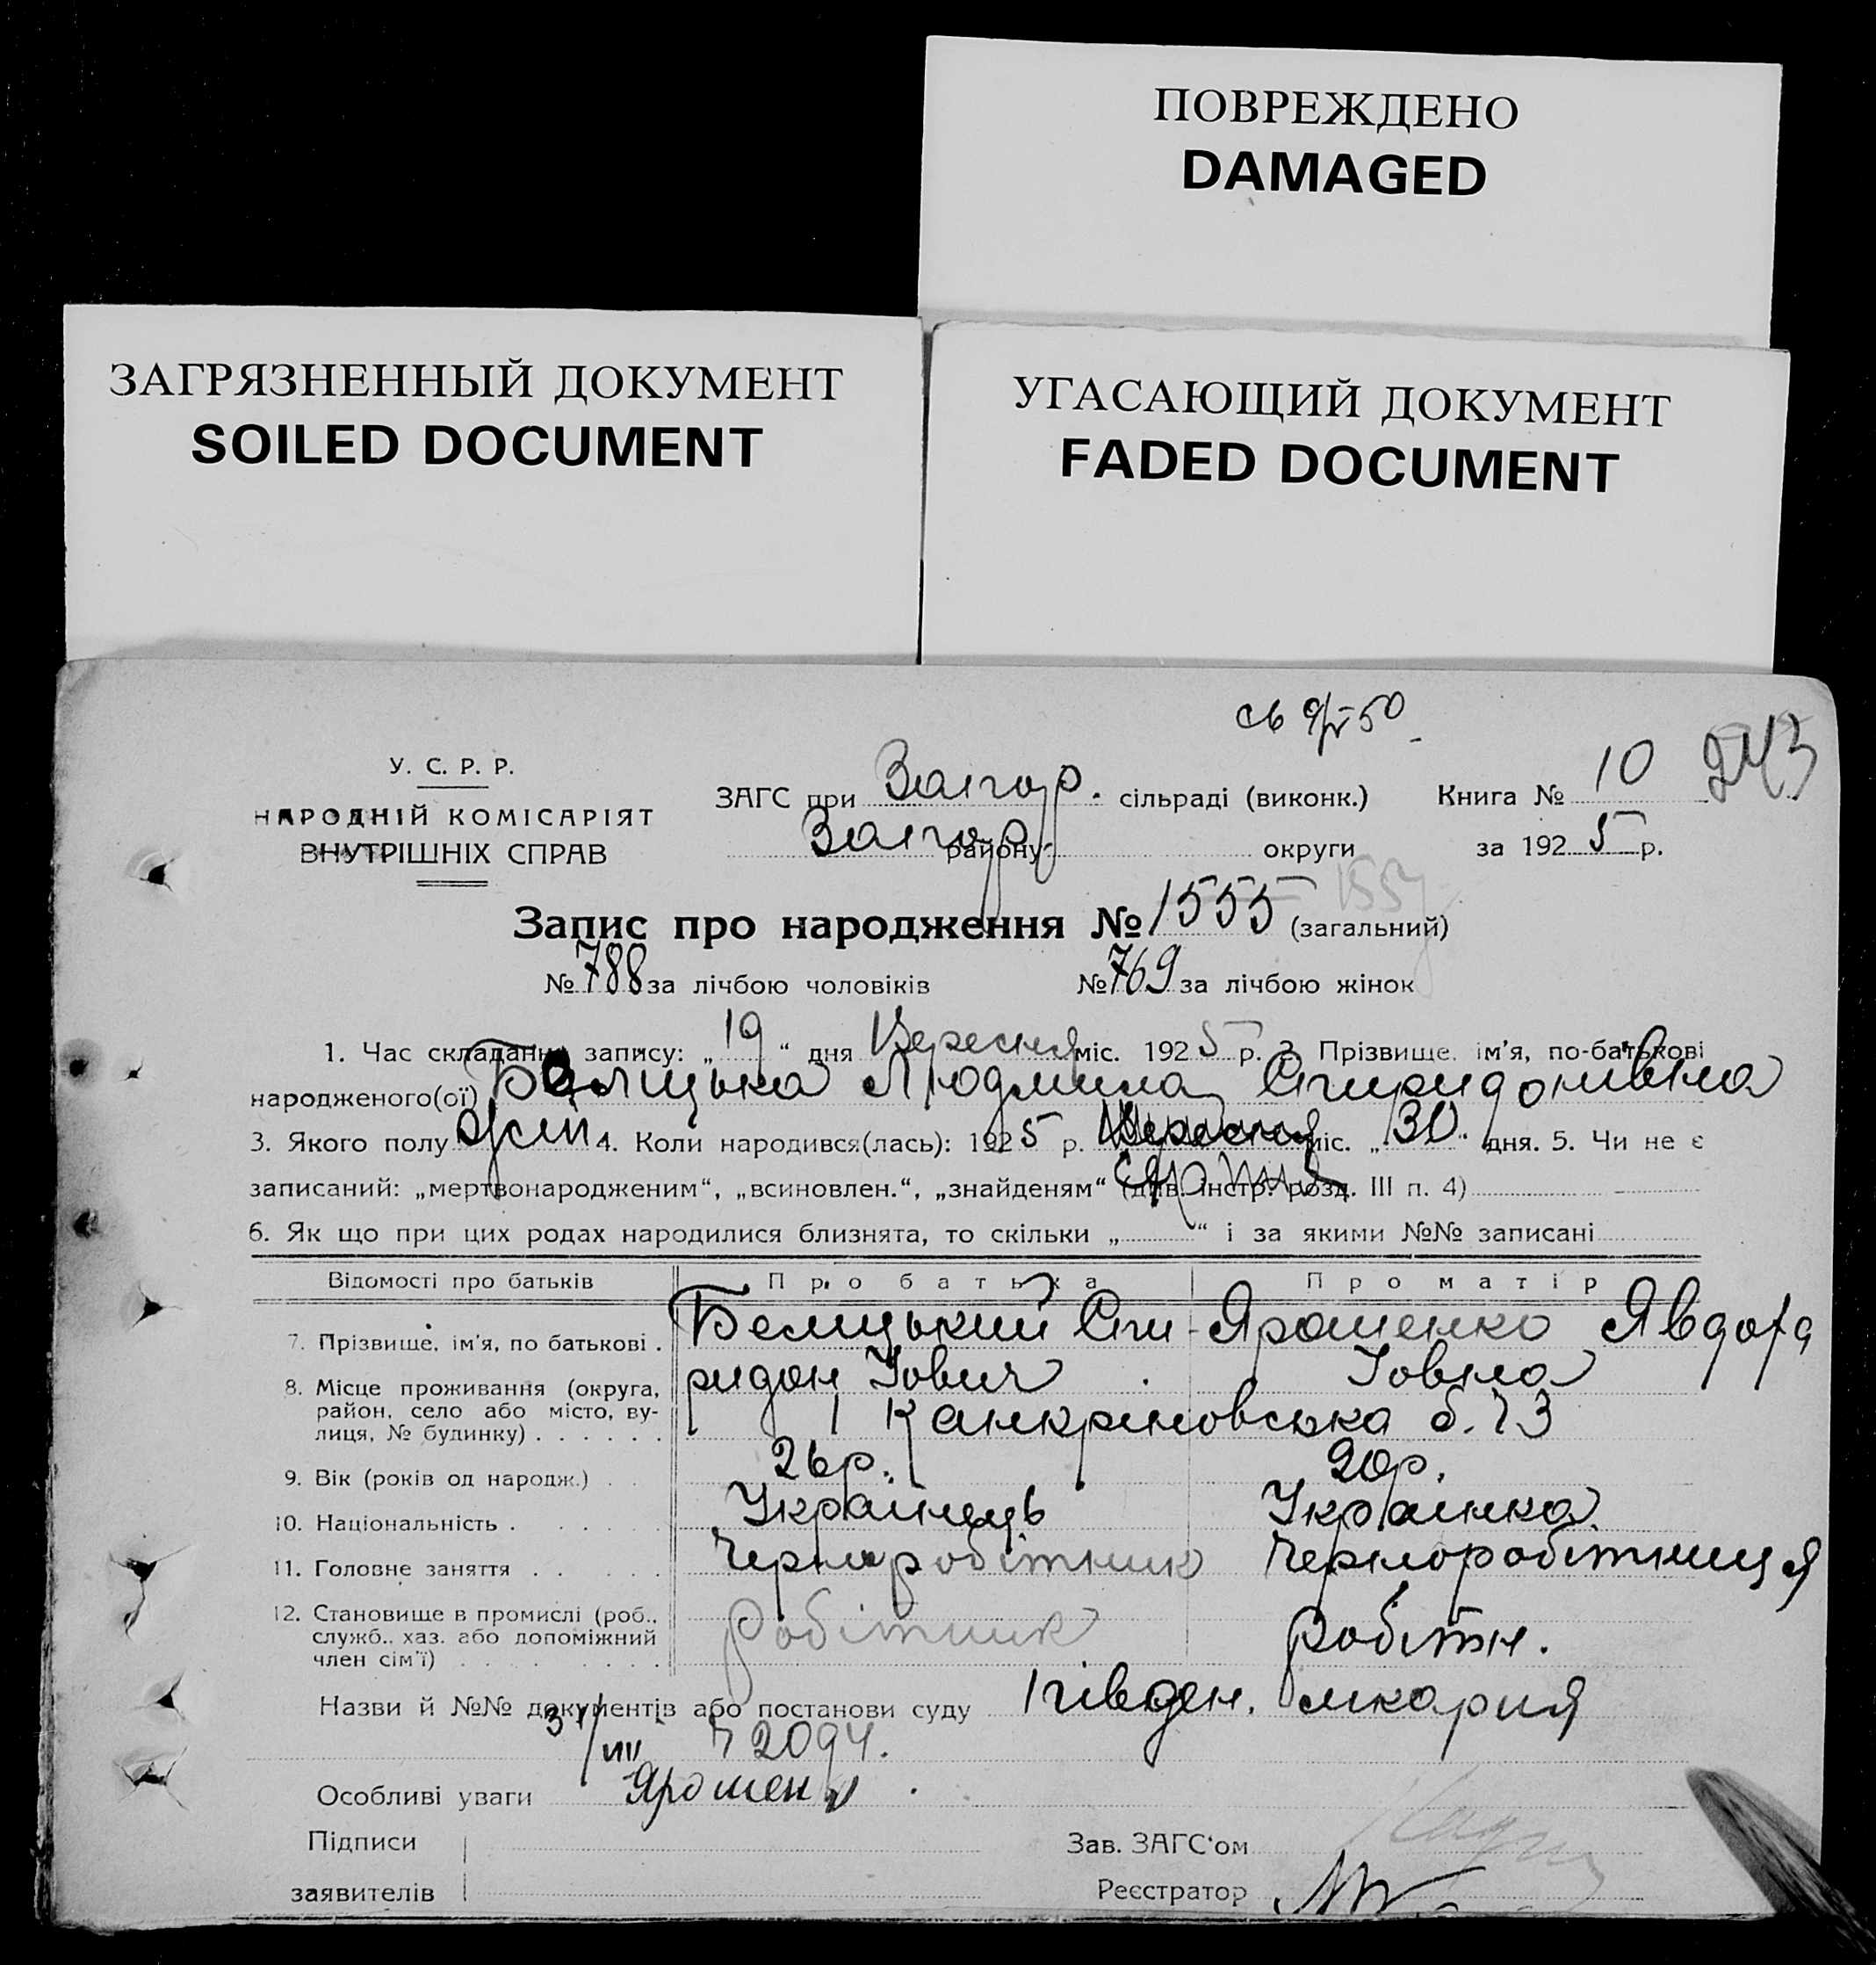 ПОВРЕЖДЕНО
DAMAGED
ЗАГРЯЗНЕННЫЙ ДОКУМЕНТ
SOILED DOCUMENT
УГАСАЮЩИЙ ДОКУМЕНТ
FADED DOCUMENT
50
У. С. Р. Р.
НАРОДНІЙ КОМІСАРІЯТ
ВНУТРІШНІХ СПРАВ
ЗАГС при Запгор. сільраді (виконк.) Книга № 10 243
Запгор району округи за 1925 р.
Запис про народження № 1555 (загальний)
№ 788 за лічбою чоловіків № 769 за лічбою жінок
1. Час складання запису: „19“ дня Вересня міс. 1925 р. 2. Прізвище, ім'я, по-батькові
народженого(ої) Белицька Людмила Спиридонівна
3. Якого полу жін 4. Коли народився(лась): 1925 р. Вересня міс. „30“ дня. 5. Чи не є
Серпня
записаний: „мертвонародженим“, „всиновлен.“, „знайденям“ (див. інстр. розд. III п. 4)
6. Як що при цих родах народилися близнята, то скільки „ “ і за якими №№ записані
Відомості про батьків Про батька Про матір
7. Прізвище, ім'я, по батькові . Белицький Спи- Ярошенко Явдоха
ридон Іович Іовна
8. Місце проживання (округа,
район, село або місто, ву-
лиця, № будинку) . . . . . . Канкриновська б. 73
9. Вік (років од народж.) . . 26 р. 20 р.
10. Національність . . . . . . Українець Українка
11. Головне заняття . . . . . Чернороботник Чорноробітниця
12. Становище в промислі (роб.,
служб., хаз. або допоміжний
член сім'ї) . . . . . . . . Робітник Робітн.
Назви й №№ документів або постанови суду Півден. лікарня
31/VIII 2094.
Особливі уваги Ярошенко
Підписи
заявителів
Зав. ЗАГС'ом
Реєстратор